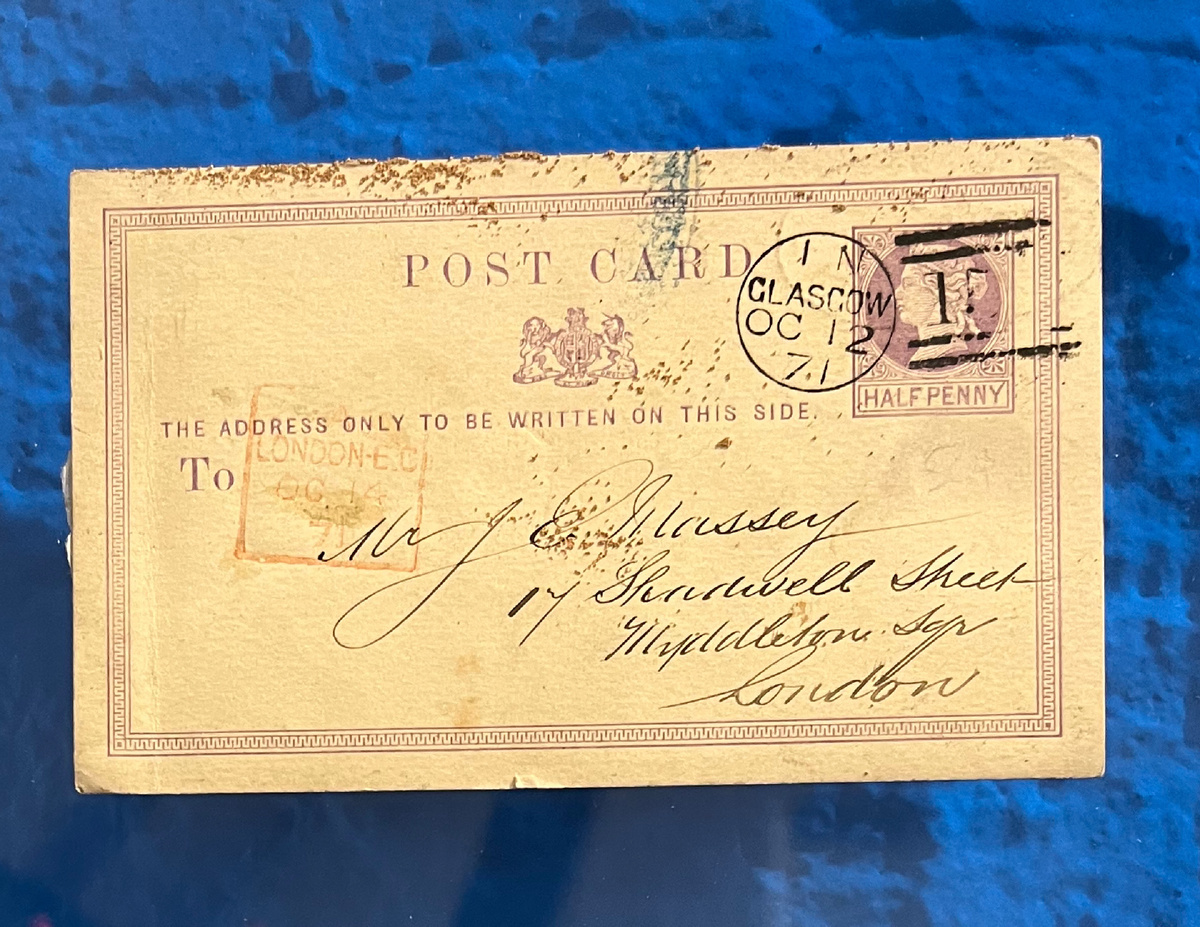 POST CARD
1 N
GLASGOW
OC 12
71
HALFPENNY
THE ADDRESS ONLY TO BE WRITTEN ON THIS SIDE.
To
LONDON-E.C
OC 14
71
Mr J E Massey
17 Shadwell Street
Myddleton Sqr
London